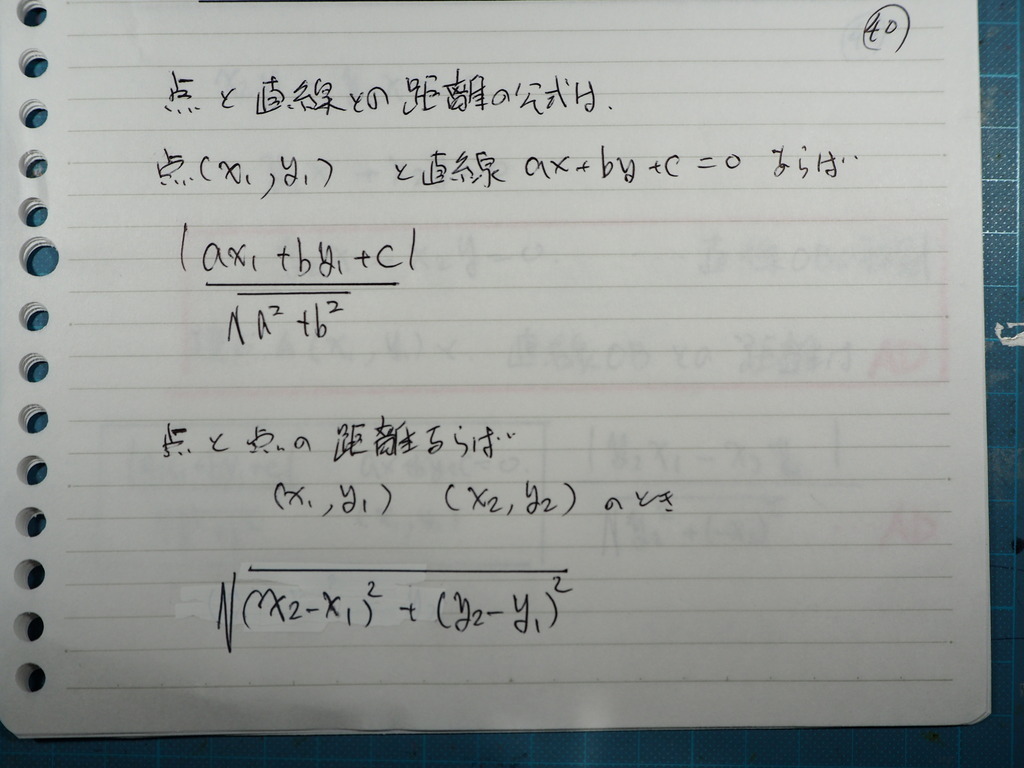 40
点と直線との距離の公式は.
点(x₁,y₁) と直線 ax+by+c=0 ならば
|ax₁+by₁+c|
√a²+b²
点と点の距離ならば
(x₁,y₁) (x₂,y₂) のとき
√(x₂-x₁)²+(y₂-y₁)²